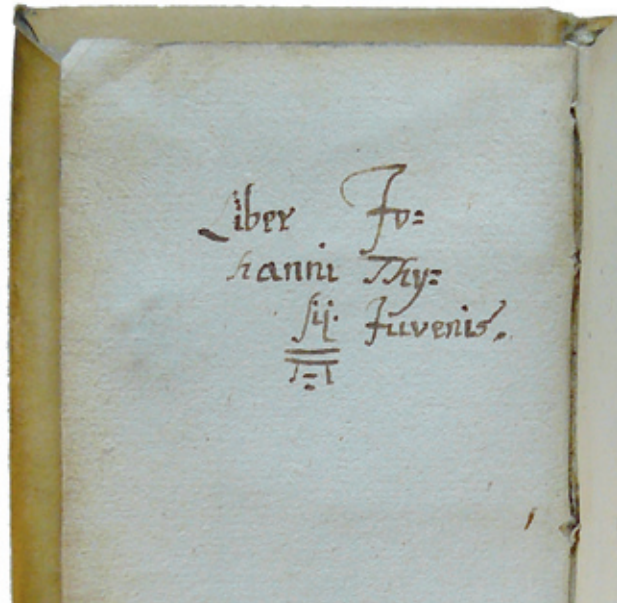 Liber Jo=
hanni Thy=
sij. Juvenis.